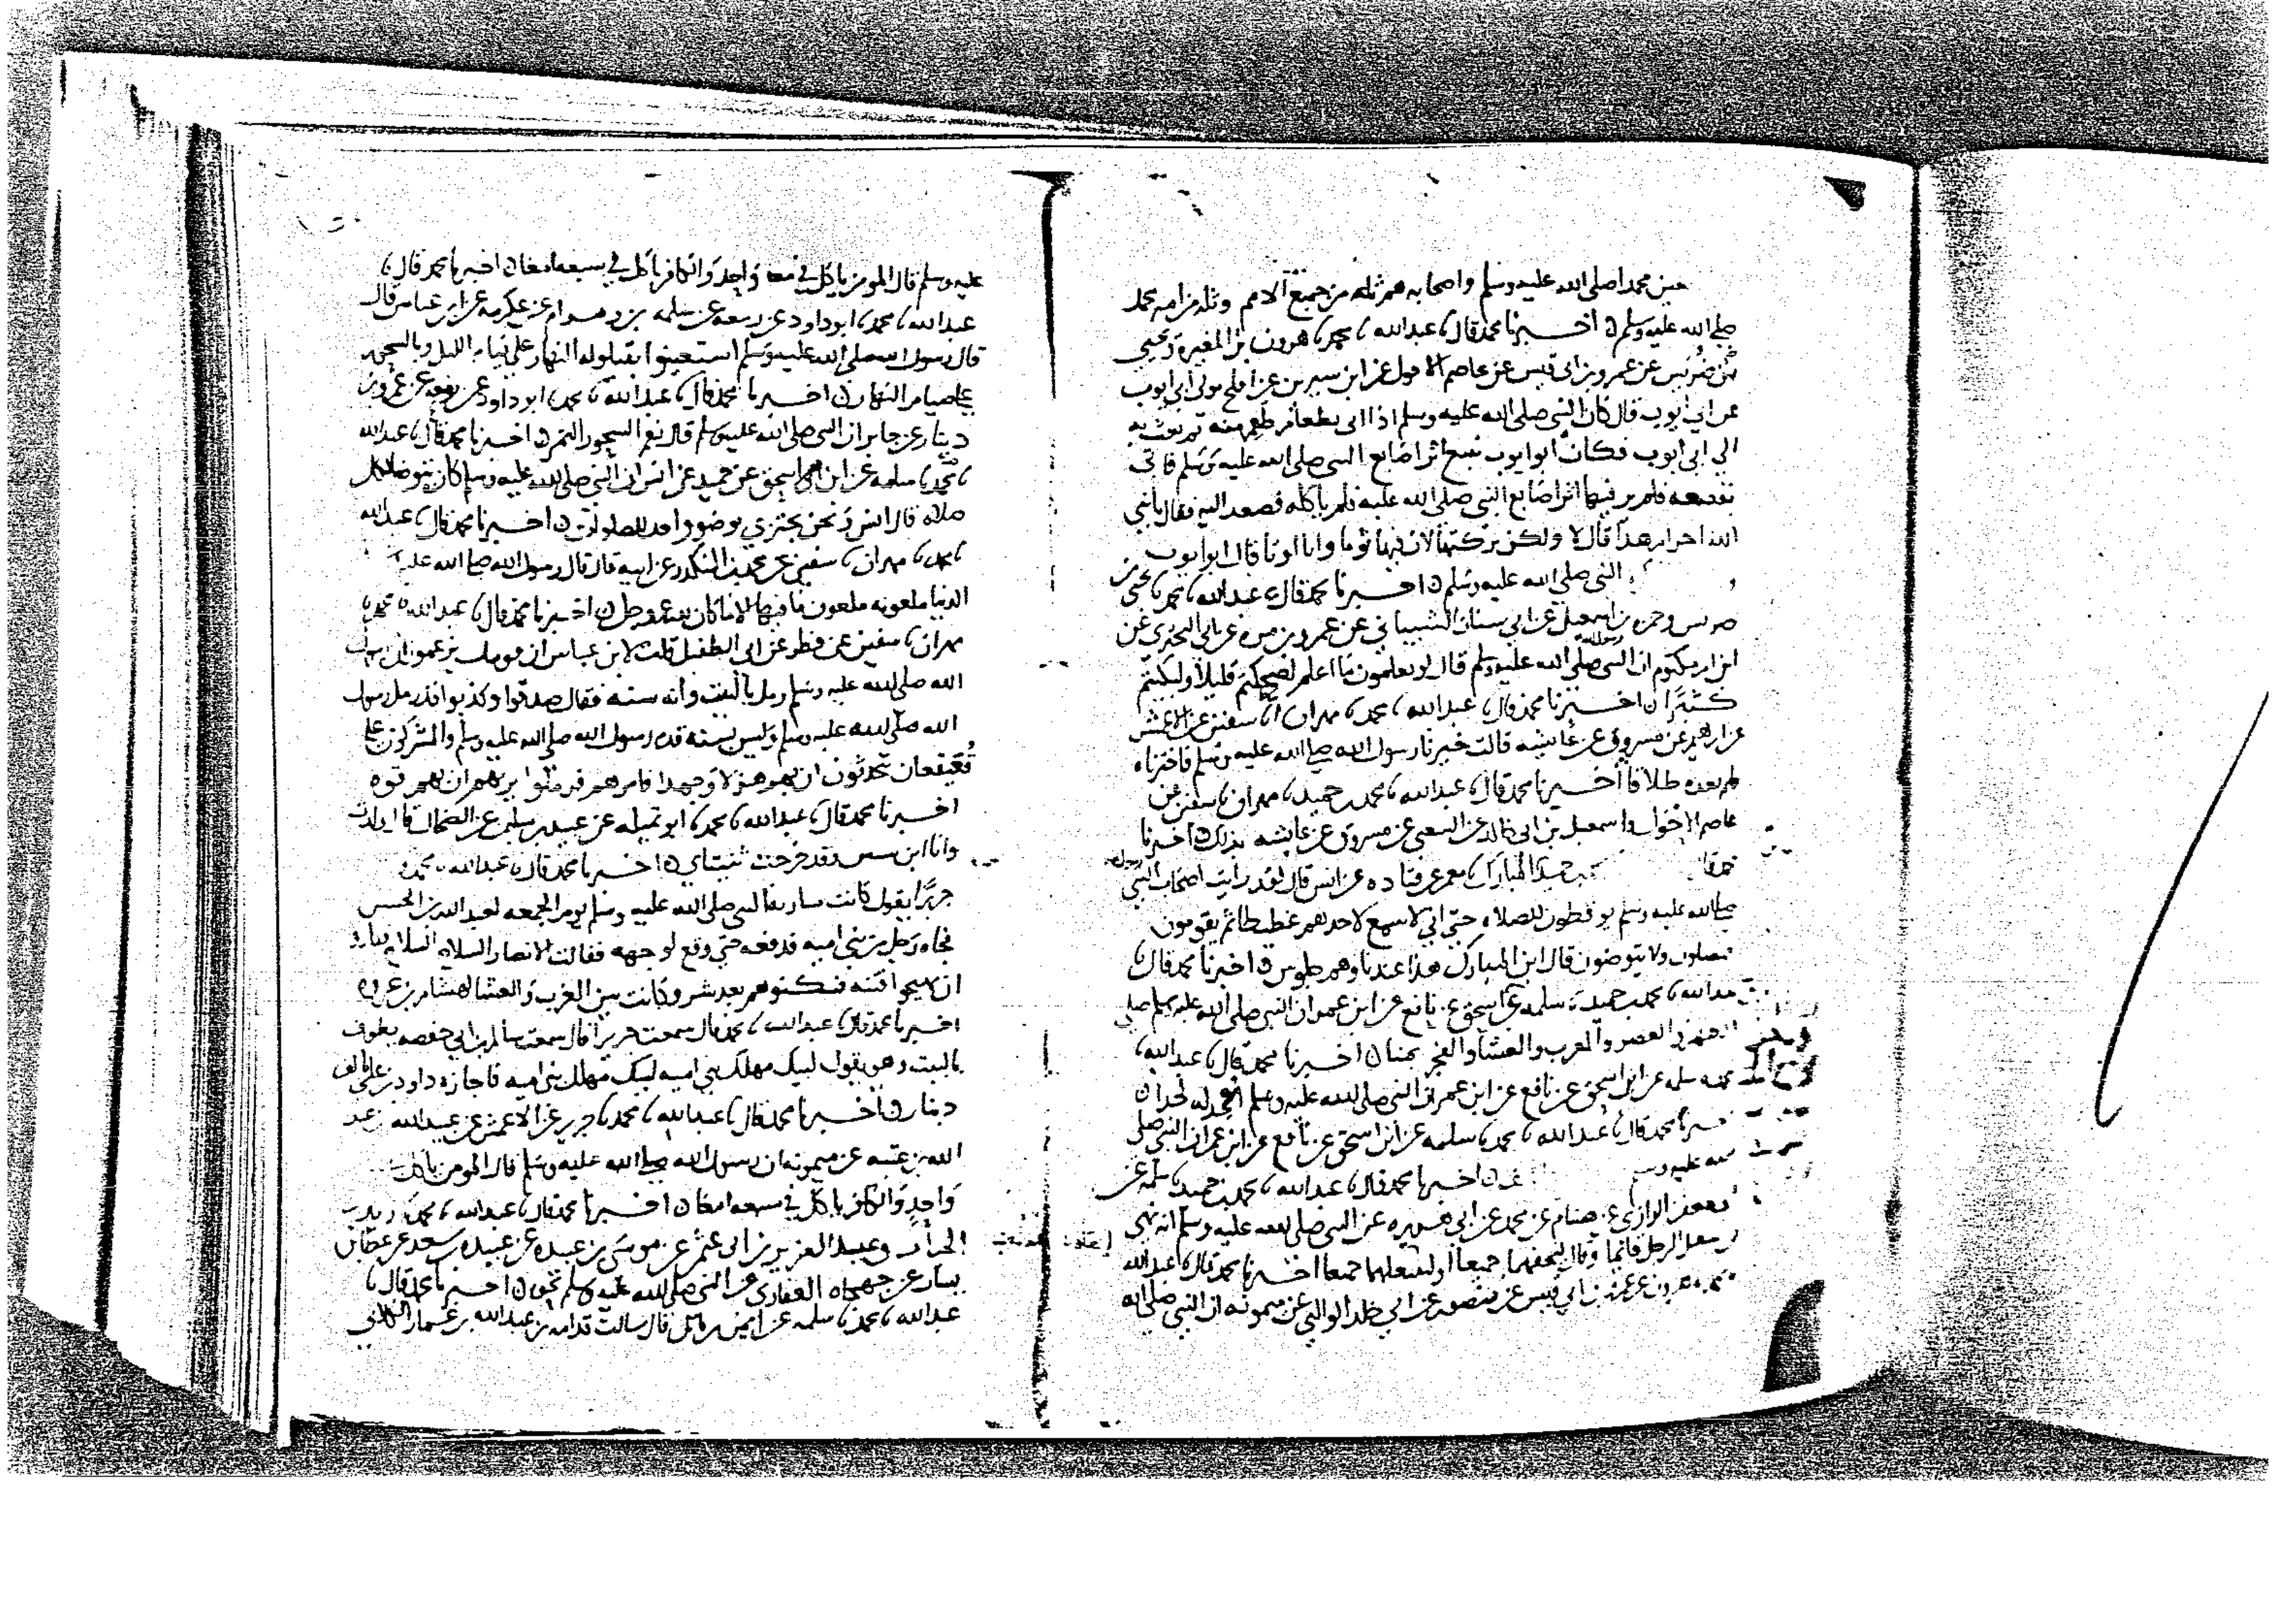 محمدا صلى الله عليه وسلم واصحابه هم ثله من جميع الامم وثله من امه محمد
صلى الله عليه وسلم اخبرنا محمد قال عبدالله محمد هرون بن المغيرة ويحيى
بن ضريس عن عمرو بن ابى قيس عن عاصم الاحول عن ابن سيرين عن افلح مولى ابى ايوب
عن ابي ايوب قال كان النبى صلى الله عليه وسلم اذا اتى بطعام طعم منه ثم بعث به
الى ابى ايوب فكان ابو ايوب يتبع اثر اصابع النبى صلى الله عليه وسلم فاتى
بقصعه فلم ير فيها اثر اصابع النبى صلى الله عليه فلم ياكله فصعد اليه فقال يا نبى
الله احرام هذا قال لا ولكن تركتها لان فيها ثوما وانا قال ابو ايوب
النبى صلى الله عليه وسلم اخبرنا محمد قال عبدالله محمد يحيى بن
ضريس وحمزه بن اسمعيل عن ابي سنان الشيباني عن عمرو بن مره عن ابى البخترى عن
ابن ام مكتوم ان النبى صلى الله عليه وسلم قال لو تعلمون ما اعلم لضحكتم قليلا ولبكيتم
كثيرا اخبرنا محمد قال عبدالله محمد مهران سفين عن الاعمش
عن ابرهيم عن مسروق عن عائشه قالت خيرنا رسول الله صلى الله عليه وسلم فاخترناه
فلم يعده طلاقا اخبرنا محمد قال عبدالله محمد بن حميد مهران سفين عن
عاصم الاحول واسمعيل بن ابى خالد عن الشعبى عن مسروق عن عايشه بذلك اخبرنا
محمد قال المبارك معمر عن قتاده عن انس قال لقد رايت اصحاب النبى
صلى الله عليه وسلم يوقظون للصلاه حتى انى لاسمع لاحدهم غطيطا ثم يقومون
فيصلون ولا يتوضون قال ابن المبارك هذا عندنا وهم جلوس اخبرنا محمد قال
عبدالله محمد بن حميد سلمه عن اسحق عن نافع عن ابن عمر ان النبى صلى الله عليه وسلم صلى
الظهر والعصر والمغرب والعشا والفجر بمنا اخبرنا محمد قال عبدالله
محمد سلمه عن ابن اسحق عن نافع عن ابن عمر ان النبى صلى الله عليه وسلم الحد له لحدا
اخبرنا محمد قال عبدالله محمد سلمه عن ابن اسحق عن نافع عن ابن عمر ان النبى صلى
الله عليه وسلم اخبرنا محمد قال عبدالله محمد بن حميد سلمه عن
ابى جعفر الرازى عن هشام عن محمد عن ابى هريره عن النبى صلى الله عليه وسلم انه نهى
ان ينتعل الرجل قائما وقال ليحفهما جميعا او لينعلهما جميعا اخبرنا محمد قال عبدالله
محمد هرون عن عمرو بن ابي قيس عن منصور عن ابي خالد الوالبى عن ميمونه ان النبى صلى الله
عليه وسلم قال المومن ياكل في معا واحد والكافر ياكل في سبعه امعا اخبرنا محمد قال
عبدالله محمد ابو داود عن زمعه عن سلمه بن وهرام عن عكرمه عن ابن عباس قال
قال رسول الله صلى الله عليه وسلم استعينوا بقيلوله النهار على قيام الليل وبالسحور
على صيام النهار اخبرنا محمد قال عبدالله محمد ابو داود عن زمعه عن عمرو بن
دينار عن جابر ان النبى صلى الله عليه وسلم قال نعم السحور التمر اخبرنا محمد قال عبدالله
محمد سلمه عن ابن اسحق عن حميد عن انس ان النبى صلى الله عليه وسلم كان يتوضا لكل
صلاه قال انس ونحن نجتزي بوضو واحد للصلوات اخبرنا محمد قال عبدالله
محمد مهران سفين عن محمد بن المنكدر عن ابيه قال قال رسول الله صلى الله عليه
الدنيا ملعونه ملعون ما فيها الا ما كان لله عز وجل اخبرنا محمد قال عبدالله محمد
مهران سفين عن فطر عن ابى الطفيل قلت لابن عباس ان قومك يزعمون ان رسول
الله صلى الله عليه وسلم رمل بالبيت وانه سنه فقال صدقوا وكذبوا قد رمل رسول
الله صلى الله عليه وسلم وليس بسنه قدم رسول الله صلى الله عليه وسلم والمشركون على
قعيقعان يتحدثون ان بهم هزلا وجهدا فامرهم فرملوا يريهم ان بهم قوه
اخبرنا محمد قال عبدالله محمد ابو تميله عن عبيد بن سليم عن الضحاك قال ولدت
وانا ابن سنتين وقد خرجت ثنيتاي اخبرنا محمد قال عبدالله محمد
جريرا يقول كانت النبى صلى الله عليه وسلم يوم الجمعه لعبدالله بن الحسن
فجاه رجل من بنى اميه فدفعه حتى وقع لوجهه فقالت الانصار السلاح السلاح
ان يهيجوا فتنه فسكنوهم بعد شر وكانت بين المغرب والعشا لهشام بن عروه
اخبرنا محمد قال عبدالله محمد قال سمعت جريرا قال سمعت سالم بن ابي حفصه يطوف
بالبيت وهو يقول لبيك مهلك بنى اميه لبيك مهلك بنى اميه فاجازه داود بن على الف
دينار اخبرنا محمد قال عبدالله محمد جرير عن الاعمش عن عبيدالله بن عبد
الله بن عتبه عن ميمونه ان رسول الله صلى الله عليه وسلم قال المومن ياكل
واحد والكافر ياكل في سبعه امعا اخبرنا محمد قال عبدالله محمد زيد بن
الحباب وعبد العزيز بن ابى عثمن عن موسى بن عبيده عن عبيد بن سعد عن عطا بن
يسار عن جهجاه الغفارى عن النبى صلى الله عليه وسلم نحوه اخبرنا محمد قال
عبدالله محمد سلمه عن ايمن بن نابل قال سالت قدامه بن عبدالله بن عمار الكلابي